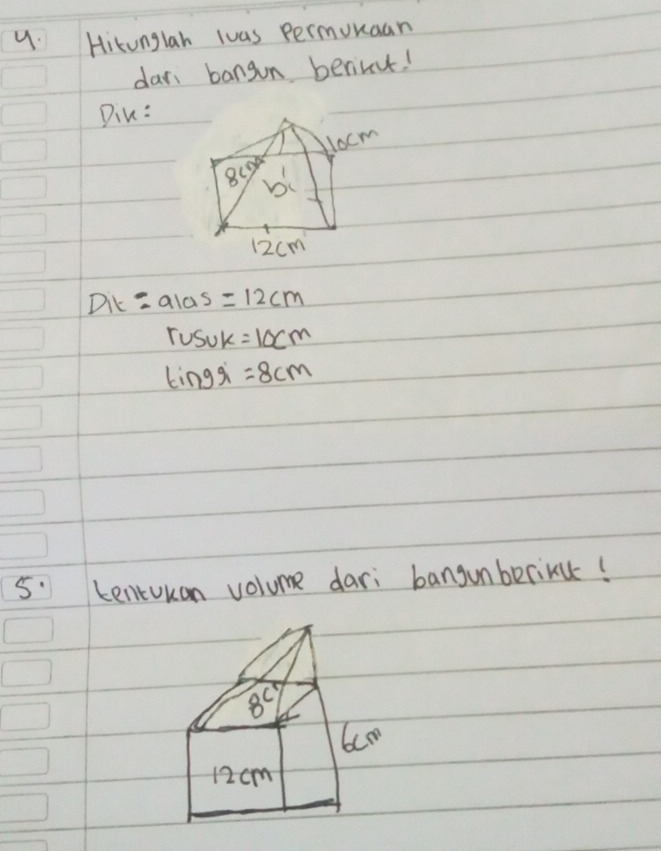 4. Hitunglah luas Permukaan
dari bangun berikut!
Dik:
10cm
8cm
b
12cm
Dit = alas = 12cm
rusuk = 10cm
tinggi = 8cm
5. tentukan volume dari bangun berikut!
8c
6cm
12cm